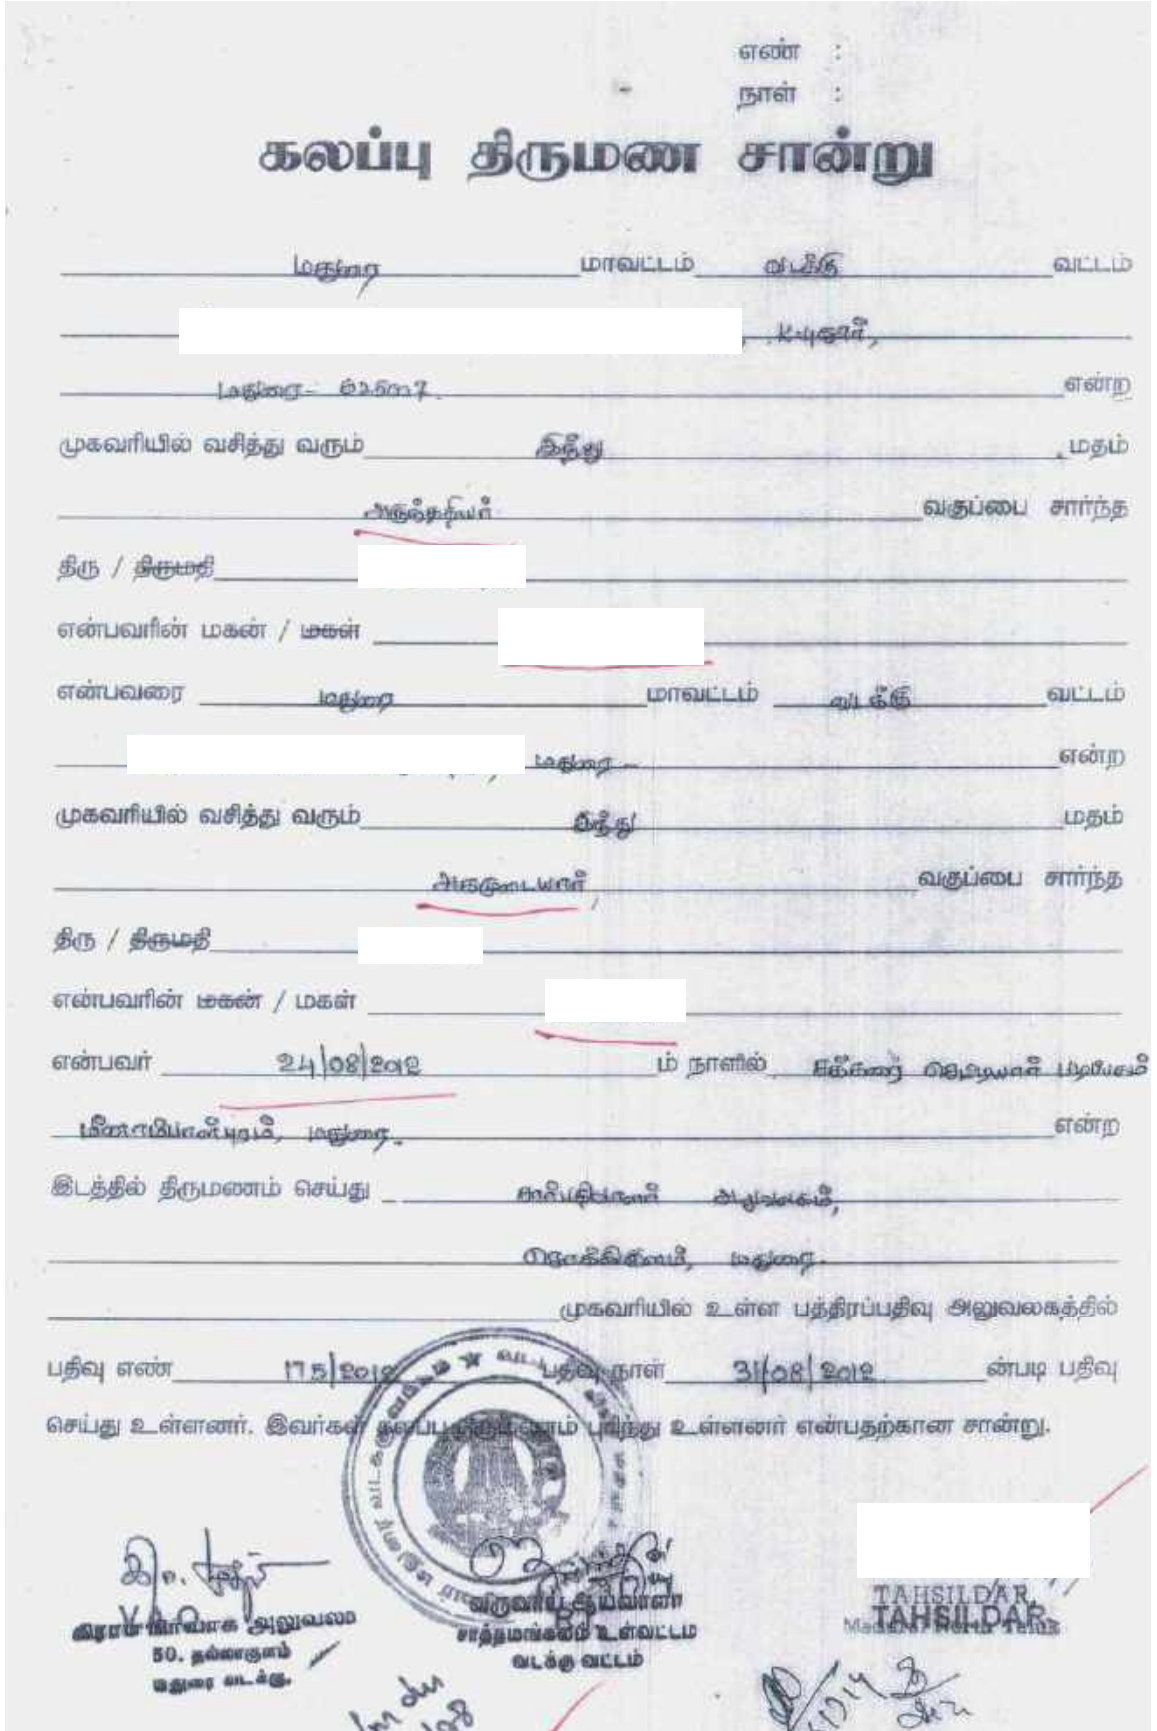 எண் :
நாள் :
கலப்பு திருமண சான்று
மதுரை மாவட்டம் வடக்கு வட்டம்
K.புதூர்,
மதுரை - 625007. என்ற
முகவரியில் வசித்து வரும் இந்து மதம்
அருந்ததியர் வகுப்பை சார்ந்த
திரு / திருமதி
என்பவரின் மகன் / மகள்
என்பவரை மதுரை மாவட்டம் வடக்கு வட்டம்
மதுரை - என்ற
முகவரியில் வசித்து வரும் இந்து மதம்
அகமுடையார், வகுப்பை சார்ந்த
திரு / திருமதி
என்பவரின் மகன் / மகள்
என்பவர் 24/08/2012 ம் நாளில்
மீனாம்பாள்புரம், மதுரை. என்ற
இடத்தில் திருமணம் செய்து சார்பதிவாளர் அலுவலகம்,
சொக்கிகுளம், மதுரை.
முகவரியில் உள்ள பத்திரப்பதிவு அலுவலகத்தில்
பதிவு எண் 175/2012 பதிவு நாள் 31/08/2012 ன்படி பதிவு
செய்து உள்ளனர். இவர்கள் கலப்பு திருமணம் புரிந்து உள்ளனர் என்பதற்கான சான்று.
கிராம நிர்வாக அலுவலர்
50. தல்லாகுளம்
மதுரை வடக்கு.
வருவாய் ஆய்வாளர்
சாத்தமங்கலம் உள்வட்டம்
வடக்கு வட்டம்
TAHSILDAR,
TAHSILDAR,
Madurai North Taluk